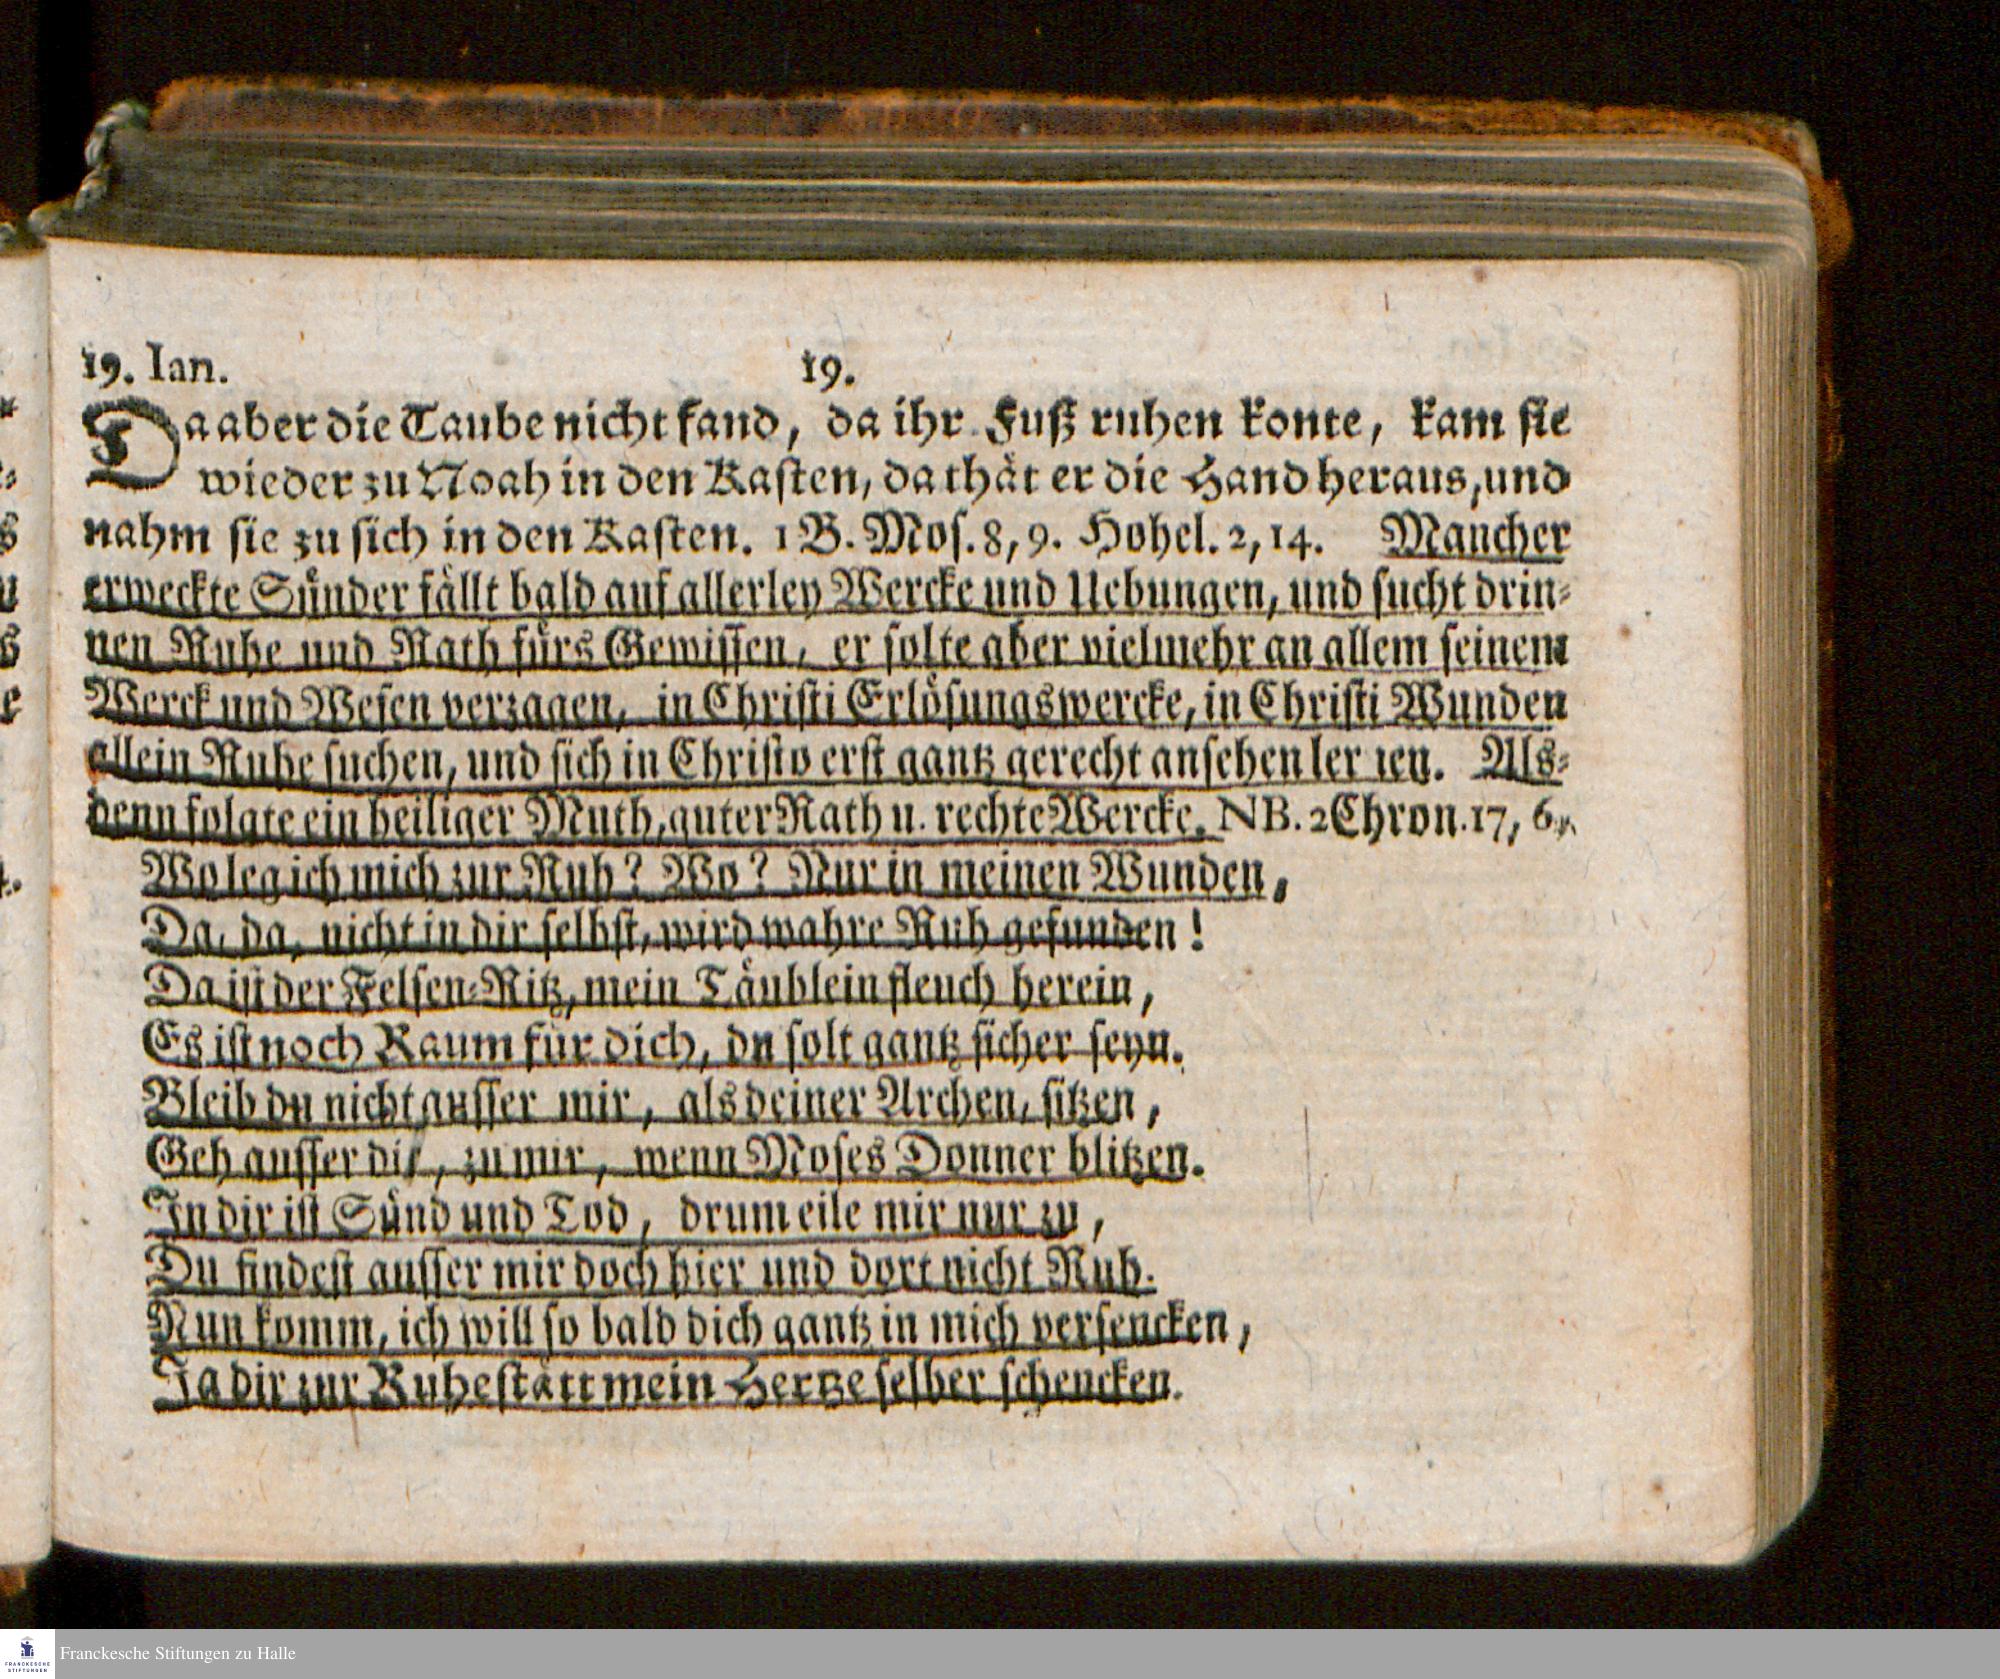 19. Ian. 19.
Da aber die Taube nicht fand, da ihr Fuß ruhen konte, kam sie
wieder zu Noah in den Kasten, da thät er die Hand heraus, und
nahm sie zu sich in den Kasten. 1 B. Mos. 8, 9. Hohel. 2, 14. Mancher
erweckte Sünder fällt bald auf allerley Wercke und Uebungen, und sucht drin-
nen Ruhe und Rath fürs Gewissen, er solte aber vielmehr an allem seinem
Werck und Wesen verzagen, in Christi Erlösungswercke, in Christi Wunden
allein Ruhe suchen, und sich in Christo erst gantz gerecht ansehen lernen. Als-
denn folgte ein heiliger Muth, guter Rath u. rechte Wercke. NB. 2 Chron. 17, 6.
Wo leg ich mich zur Ruh? Wo? Nur in meinen Wunden,
Da, da, nicht in dir selbst, wird wahre Ruh gefunden!
Da ist der Felsen-Ritz, mein Täublein fleuch herein,
Es ist noch Raum für dich, du solt gantz sicher seyn.
Bleib du nicht ausser mir, als deiner Archen, sitzen,
Geh ausser dir, zu mir, wenn Moses Donner blitzen.
In dir ist Sünd und Tod, drum eile mir nur zu,
Du findest ausser mir doch hier und dort nicht Ruh.
Nun komm, ich will so bald dich gantz in mich versencken,
Ja dir zur Ruhestätt mein Hertze selber schencken.
Franckesche Stiftungen zu Halle
FRANCKESCHE
STIFTUNGEN